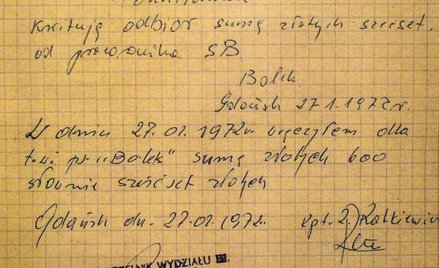 Kwituję odbiór sumę złotych szećset,
od pracownika SB
Bolek
Gdańsk 27.1.1972r.
W dniu 27.01.1972r. wręczyłem dla
t.w. ps. "Bolek" sumę złotych 600
słownie sześćset złotych
Gdańsk dn. 27.01.1972r. kpt.
WYDZIAŁU III